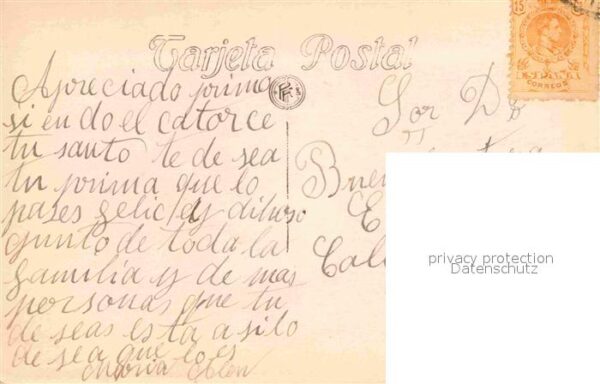 Tarjeta Postal
15
CORREOS
Apreciado prima
siendo el catorce
tu santo te desea
tu prima que lo
pases gelic y dichoso
gunto de toda la
familia y de mas
personas que tu
de seas esta asilo
de sea que lo es
Maria
Sor Dº
Buen
E
Cal
privacy protection
Datenschutz